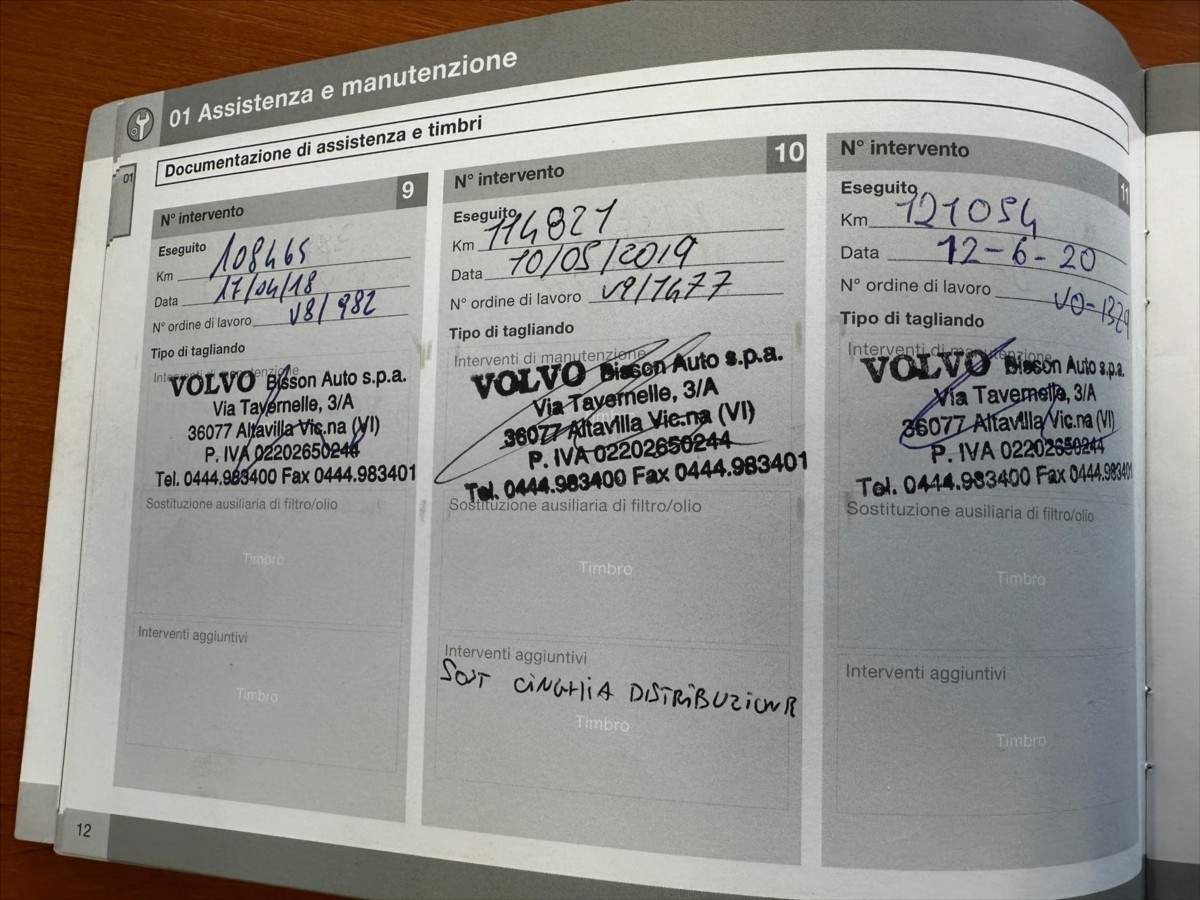 01 Assistenza e manutenzione
Documentazione di assistenza e timbri
01
N° intervento 9
Eseguito
Km 108465
Data 17/04/18
N° ordine di lavoro V8/982
Tipo di tagliando
Interventi di manutenzione
VOLVO Bisson Auto s.p.a.
Via Tavernelle, 3/A
36077 Altavilla Vic.na (VI)
P. IVA 02202650244
Tel. 0444.983400 Fax 0444.983401
Sostituzione ausiliaria di filtro/olio
Timbro
Interventi aggiuntivi
Timbro
N° intervento 10
Eseguito
Km 114821
Data 10/05/2019
N° ordine di lavoro V9/1477
Tipo di tagliando
Interventi di manutenzione
VOLVO Bisson Auto s.p.a.
Via Tavernelle, 3/A
36077 Altavilla Vic.na (VI)
P. IVA 02202650244
Tel. 0444.983400 Fax 0444.983401
Sostituzione ausiliaria di filtro/olio
Timbro
Interventi aggiuntivi
SOST CINGHIA DISTRIBUZIONE
Timbro
N° intervento 11
Eseguito
Km 121054
Data 12-6-20
N° ordine di lavoro V0-1329
Tipo di tagliando
Interventi di manutenzione
VOLVO Bisson Auto s.p.a.
Via Tavernelle, 3/A
36077 Altavilla Vic.na (VI)
P. IVA 02202650244
Tel. 0444.983400 Fax 0444.983401
Sostituzione ausiliaria di filtro/olio
Timbro
Interventi aggiuntivi
Timbro
12